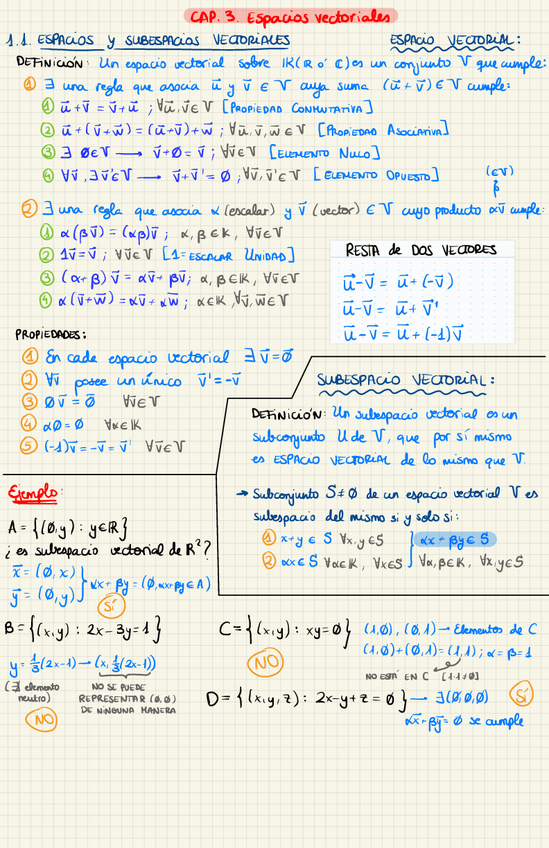 CAP. 3. Espacios vectoriales
1.1. ESPACIOS y SUBESPACIOS VECTORIALES
ESPACIO VECTORIAL:
DEFINICIÓN: Un espacio vectorial sobre IK (R o' C) es un conjunto V que cumple:
① ∃ una regla que asocia u⃗ y v⃗ ∈ V cuya suma (u⃗ + v⃗) ∈ V cumple:
① u⃗ + v⃗ = v⃗ + u⃗ ; ∀u⃗, v⃗ ∈ V [PROPIEDAD CONMUTATIVA]
② u⃗ + (v⃗ + w⃗) = (u⃗ + v⃗) + w⃗ ; ∀u⃗, v⃗, w⃗ ∈ V [PROPIEDAD ASOCIATIVA]
③ ∃ Ø ∈ V → v⃗ + Ø = v⃗ ; ∀v⃗ ∈ V [ELEMENTO NULO]
④ ∀v⃗, ∃ v⃗' ∈ V → v⃗ + v⃗' = Ø ; ∀v⃗, v⃗' ∈ V [ELEMENTO OPUESTO]
(∈ V)
② ∃ una regla que asocia α (escalar) y v⃗ (vector) ∈ V cuyo producto αv⃗ cumple:
① α(βv⃗) = (αβ)v⃗ ; α, β ∈ IK, ∀v⃗ ∈ V
② 1v⃗ = v⃗ ; ∀v⃗ ∈ V [1 = ESCALAR UNIDAD]
③ (α + β)v⃗ = αv⃗ + βv⃗ ; α, β ∈ IK, ∀v⃗ ∈ V
④ α(v⃗ + w⃗) = αv⃗ + αw⃗ ; α ∈ IK, ∀v⃗, w⃗ ∈ V
RESTA de DOS VECTORES
u⃗ - v⃗ = u⃗ + (-v⃗)
u⃗ - v⃗ = u⃗ + v⃗'
u⃗ - v⃗ = u⃗ + (-1)v⃗
PROPIEDADES:
① En cada espacio vectorial ∃ v⃗ = Ø⃗
② ∀v⃗ posee un único v⃗' = -v⃗
③ Øv⃗ = Ø⃗ ∀v⃗ ∈ V
④ αØ = Ø ∀α ∈ IK
⑤ (-1)v⃗ = -v⃗ = v⃗' ∀v⃗ ∈ V
SUBESPACIO VECTORIAL:
DEFINICIÓN: Un subespacio vectorial es un
subconjunto U de V, que por sí mismo
es ESPACIO VECTORIAL de lo mismo que V.
→ Subconjunto S ≠ Ø de un espacio vectorial V es
subespacio del mismo si y solo si:
① x + y ∈ S ∀x, y ∈ S
② αx ∈ S ∀α ∈ IK, ∀x ∈ S
αx + βy ∈ S
∀α, β ∈ IK, ∀x, y ∈ S
Ejemplo:
A = {(Ø, y) : y ∈ R}
¿es subespacio vectorial de R²?
x⃗ = (Ø, x)
y⃗ = (Ø, y)
αx + βy = (Ø, αx + βy ∈ A)
SÍ
B = {(x, y) : 2x - 3y = 1}
y = 1/3(2x - 1) → (x, 1/3(2x - 1))
(∄ elemento
neutro)
NO SE PUEDE
REPRESENTAR (Ø, Ø)
DE NINGUNA MANERA
NO
C = {(x, y) : xy = Ø}
(1, Ø), (Ø, 1) → Elementos de C
(1, Ø) + (Ø, 1) = (1, 1) ; α = β = 1
NO ESTÁ EN C [1·1 ≠ Ø]
NO
D = {(x, y, z) : 2x - y + z = Ø} → ∃(Ø, Ø, Ø)
SÍ
αx⃗ + βy⃗ = Ø se cumple